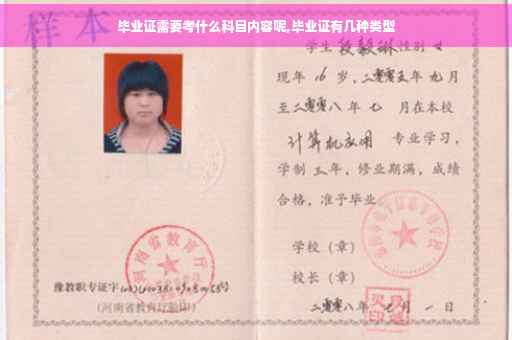 毕业证需要考什么科目内容呢,毕业证有几种类型
样本
学生 段毅琳 性别 女
现年 16 岁,二零零五年 九月
至二零零八年 七 月在本校
计算机应用 专业学习,
学制 三年,修业期满,成绩
合格,准予毕业
学校（章）
校长（章）
二零零八年 七 月 一 日
河南省教育厅
豫教职专证字
(河南省教育厅验印)